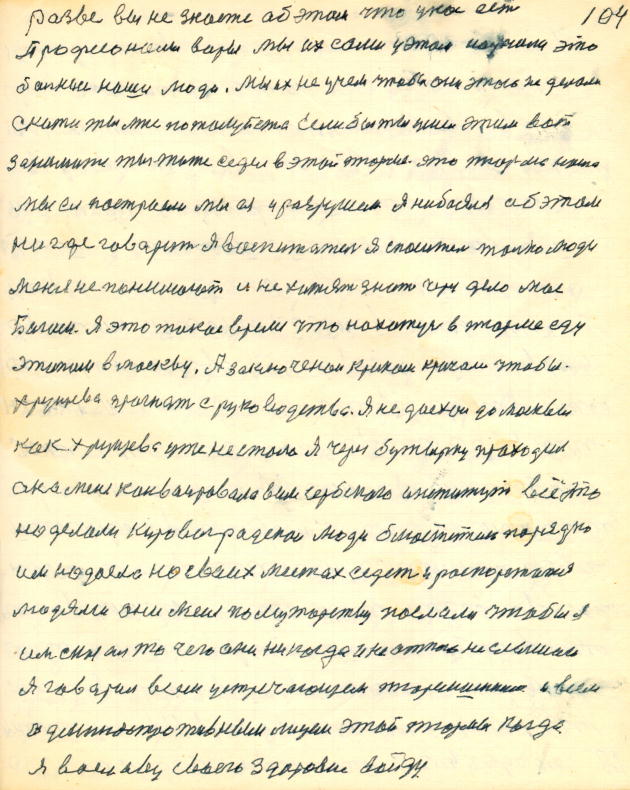 104
разве вы не знаете об этом что у нас есть
профсионалы воры мы их сами у этом научили это
больные наши люди. Мы их не учем чтобы они этого не делали
скажи ты мне пожалуйста Если бы ты ушел этим вот
занимат ты тоже седел в этой тюрме. это тюрьма наша
мы ее построели мы ея и разрушем Я ни боялся об этом
ни где говарит Я воспитател Я спосител толко люди
меня не понимают и не хотят знать через дело мое
Богом. Я это такое время что нахожус в тюрме еду
этапом в москву. А заключоном криком кричали чтобы
хрущева прогнат с руководства. Я не доехал до москвы
как хрущева уже не стало Я через бутырку проходил
она меня конваировала в им сербского институт всё это
наделали Кировоградской люди блюстители порядко
им надоело на своих местах седет и распоряжатся
людями они меня по мутарству послали чтобы я
им снял то чего они никогда и не от кого не слышали
Я говарил всем устречающем тюремшикам и всем
административным лицам этой тюрмы когда
я восława своего Здоровие войду